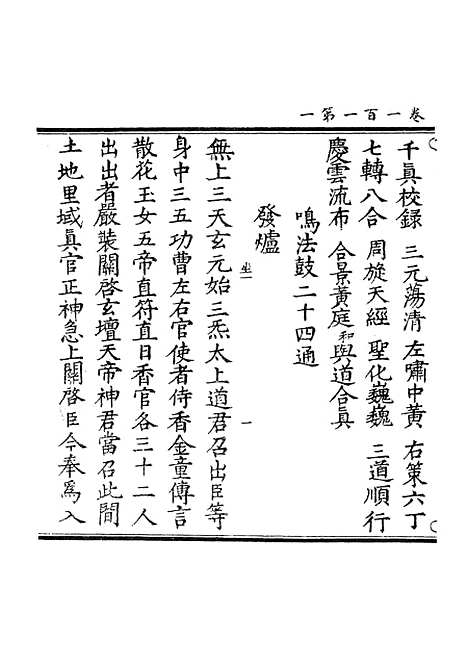 卷一百一第一
千真校錄　三元蕩清　左嘯中黃　右策六丁
七轉八合　周旋天經　聖化巍巍　三道順行
慶雲流布　合景黃庭和與道合真
鳴法鼓二十四通
發爐
坐一　一
無上三天玄元始三炁太上道君召出臣等
身中三五功曹左右官使者侍香金童傳言
散花玉女五帝直符直日香官各三十二人
出出者嚴裝關啓玄壇天帝神君當召此間
土地里域真官正神急上關啓臣今奉爲入